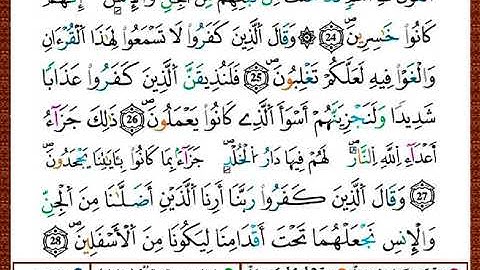 كَانُوا۟ خَـٰسِرِينَ ۝٢٤ ۞ وَقَالَ ٱلَّذِينَ كَفَرُوا۟ لَا تَسْمَعُوا۟ لِهَـٰذَا ٱلْقُرْءَانِ
وَٱلْغَوْا۟ فِيهِ لَعَلَّكُمْ تَغْلِبُونَ ۝٢٥ فَلَنُذِيقَنَّ ٱلَّذِينَ كَفَرُوا۟ عَذَابًا
شَدِيدًا وَلَنَجْزِيَنَّهُمْ أَسْوَأَ ٱلَّذِى كَانُوا۟ يَعْمَلُونَ ۝٢٦ ذَٰلِكَ جَزَآءُ
أَعْدَآءِ ٱللَّهِ ٱلنَّارُ ۖ لَهُمْ فِيهَا دَارُ ٱلْخُلْدِ ۖ جَزَآءًۢ بِمَا كَانُوا۟ بِـَٔايَـٰتِنَا يَجْحَدُونَ
۝٢٧ وَقَالَ ٱلَّذِينَ كَفَرُوا۟ رَبَّنَآ أَرِنَا ٱلَّذَيْنِ أَضَلَّانَا مِنَ ٱلْجِنِّ
وَٱلْإِنسِ نَجْعَلْهُمَا تَحْتَ أَقْدَامِنَا لِيَكُونَا مِنَ ٱلْأَسْفَلِينَ ۝٢٨